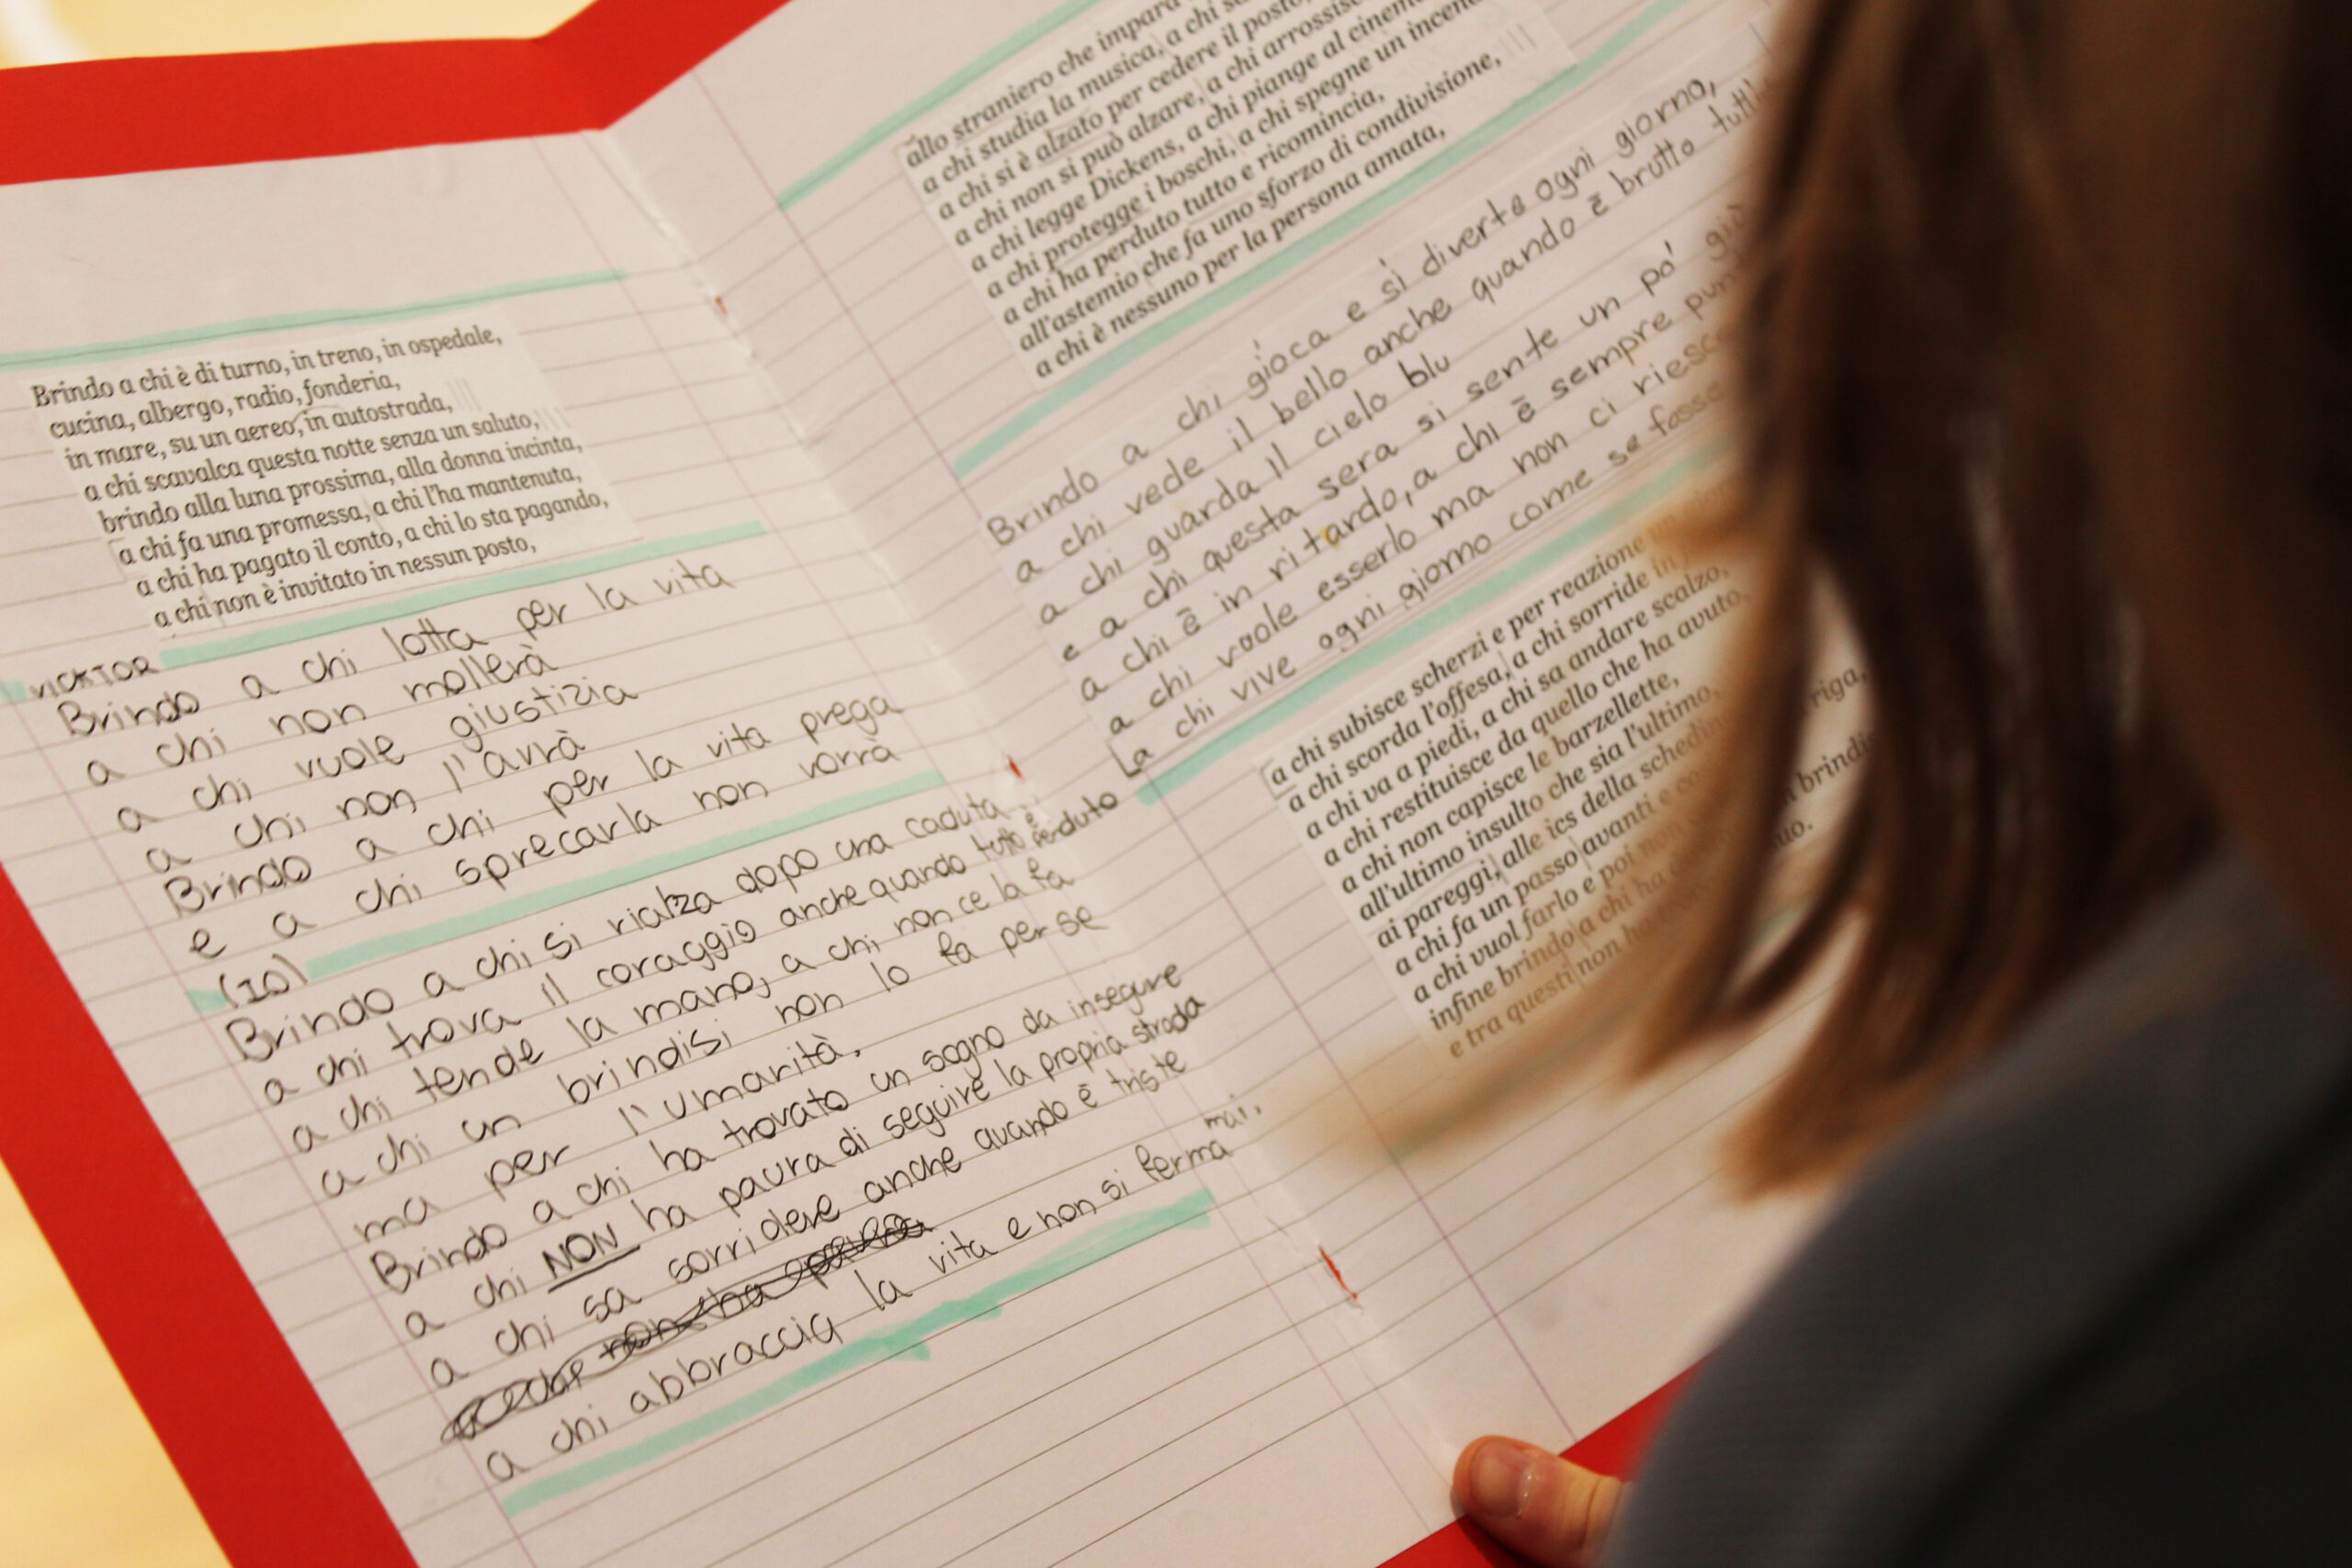 Brindo a chi è di turno, in treno, in ospedale,
cucina, albergo, radio, fonderia,
in mare, su un aereo, in autostrada,
a chi scavalca questa notte senza un saluto,
brindo alla luna prossima, alla donna incinta,
a chi fa una promessa, a chi l'ha mantenuta,
a chi ha pagato il conto, a chi lo sta pagando,
a chi non è invitato in nessun posto,
VICKTOR
Brindo a chi lotta per la vita
a chi non mollerà
a chi vuole giustizia
a chi non l'avrà
Brindo a chi per la vita prega
e a chi sprecarla non vorrà
(IO)
Brindo a chi si rialza dopo una caduta
a chi trova il coraggio anche quando tutto è perduto
a chi tende la mano, a chi non ce la fa
a chi un brindisi non lo fa per se
ma per l'umanità.
Brindo a chi ha trovato un sogno da inseguire
a chi NON ha paura di seguire la propria strada
a chi sa sorridere anche quando è triste
a chi abbraccia la vita e non si ferma mai.
allo straniero che impara
a chi studia la musica, a chi
a chi si è alzato per cedere il posto,
a chi non si può alzare, a chi arrossisce
a chi legge Dickens, a chi piange al cinema
a chi protegge i boschi, a chi spegne un incendio
a chi ha perduto tutto e ricomincia,
all'astemio che fa uno sforzo di condivisione,
a chi è nessuno per la persona amata,
Brindo a chi gioca e si diverte ogni giorno,
a chi vede il bello anche quando è brutto
a chi guarda il cielo blu
e a chi questa sera si sente un po'
a chi è in ritardo, a chi è sempre
a chi vuole esserlo ma non ci
La chi vive ogni giorno come se fosse
a chi subisce scherzi e per reazione
a chi scorda l'offesa, a chi sorride in
a chi va a piedi, a chi sa andare scalzo,
a chi restituisce da quello che ha avuto,
a chi non capisce le barzellette,
all'ultimo insulto che sia l'ultimo,
ai pareggi, alle ics della schedina
a chi fa un passo avanti e
a chi vuol farlo e poi non
infine brindo a chi ha brindisi
e tra questi non ha